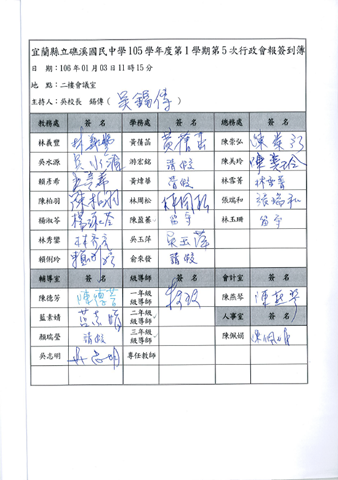 宜蘭縣立礁溪國民中學105學年度第1學期第5次行政會報簽到簿
日 期:106年01月03日11時15分
地 點:二樓會議室
主持人:吳校長 錫傳( 吳錫傳 )
教務處 簽 名 學務處 簽 名 總務處 簽 名
林義豐 黃蓓菡 陳崇弘
吳水源 吳水源 游宏銘 請假 陳美玲 陳美玲
賴彥希 黃煒華 請假 林雪菁
陳柏羽 陳柏羽 林周松 林周松 張瑞和 張瑞和
楊淑苓 楊淑苓 陳盈蓁 留守 林玉珊 留守
林秀鑾 吳玉萍 吳玉萍
賴俐玲 俞來發 請假
輔導室 簽 名 級導師 簽 名 會計室 簽 名
陳德芳 一年級級導師 陳燕琴
藍素靖 二年級級導師 人事室 簽 名
顏瑞瑩 請假 三年級級導師 陳佩娟
吳志明 吳志明 專任教師